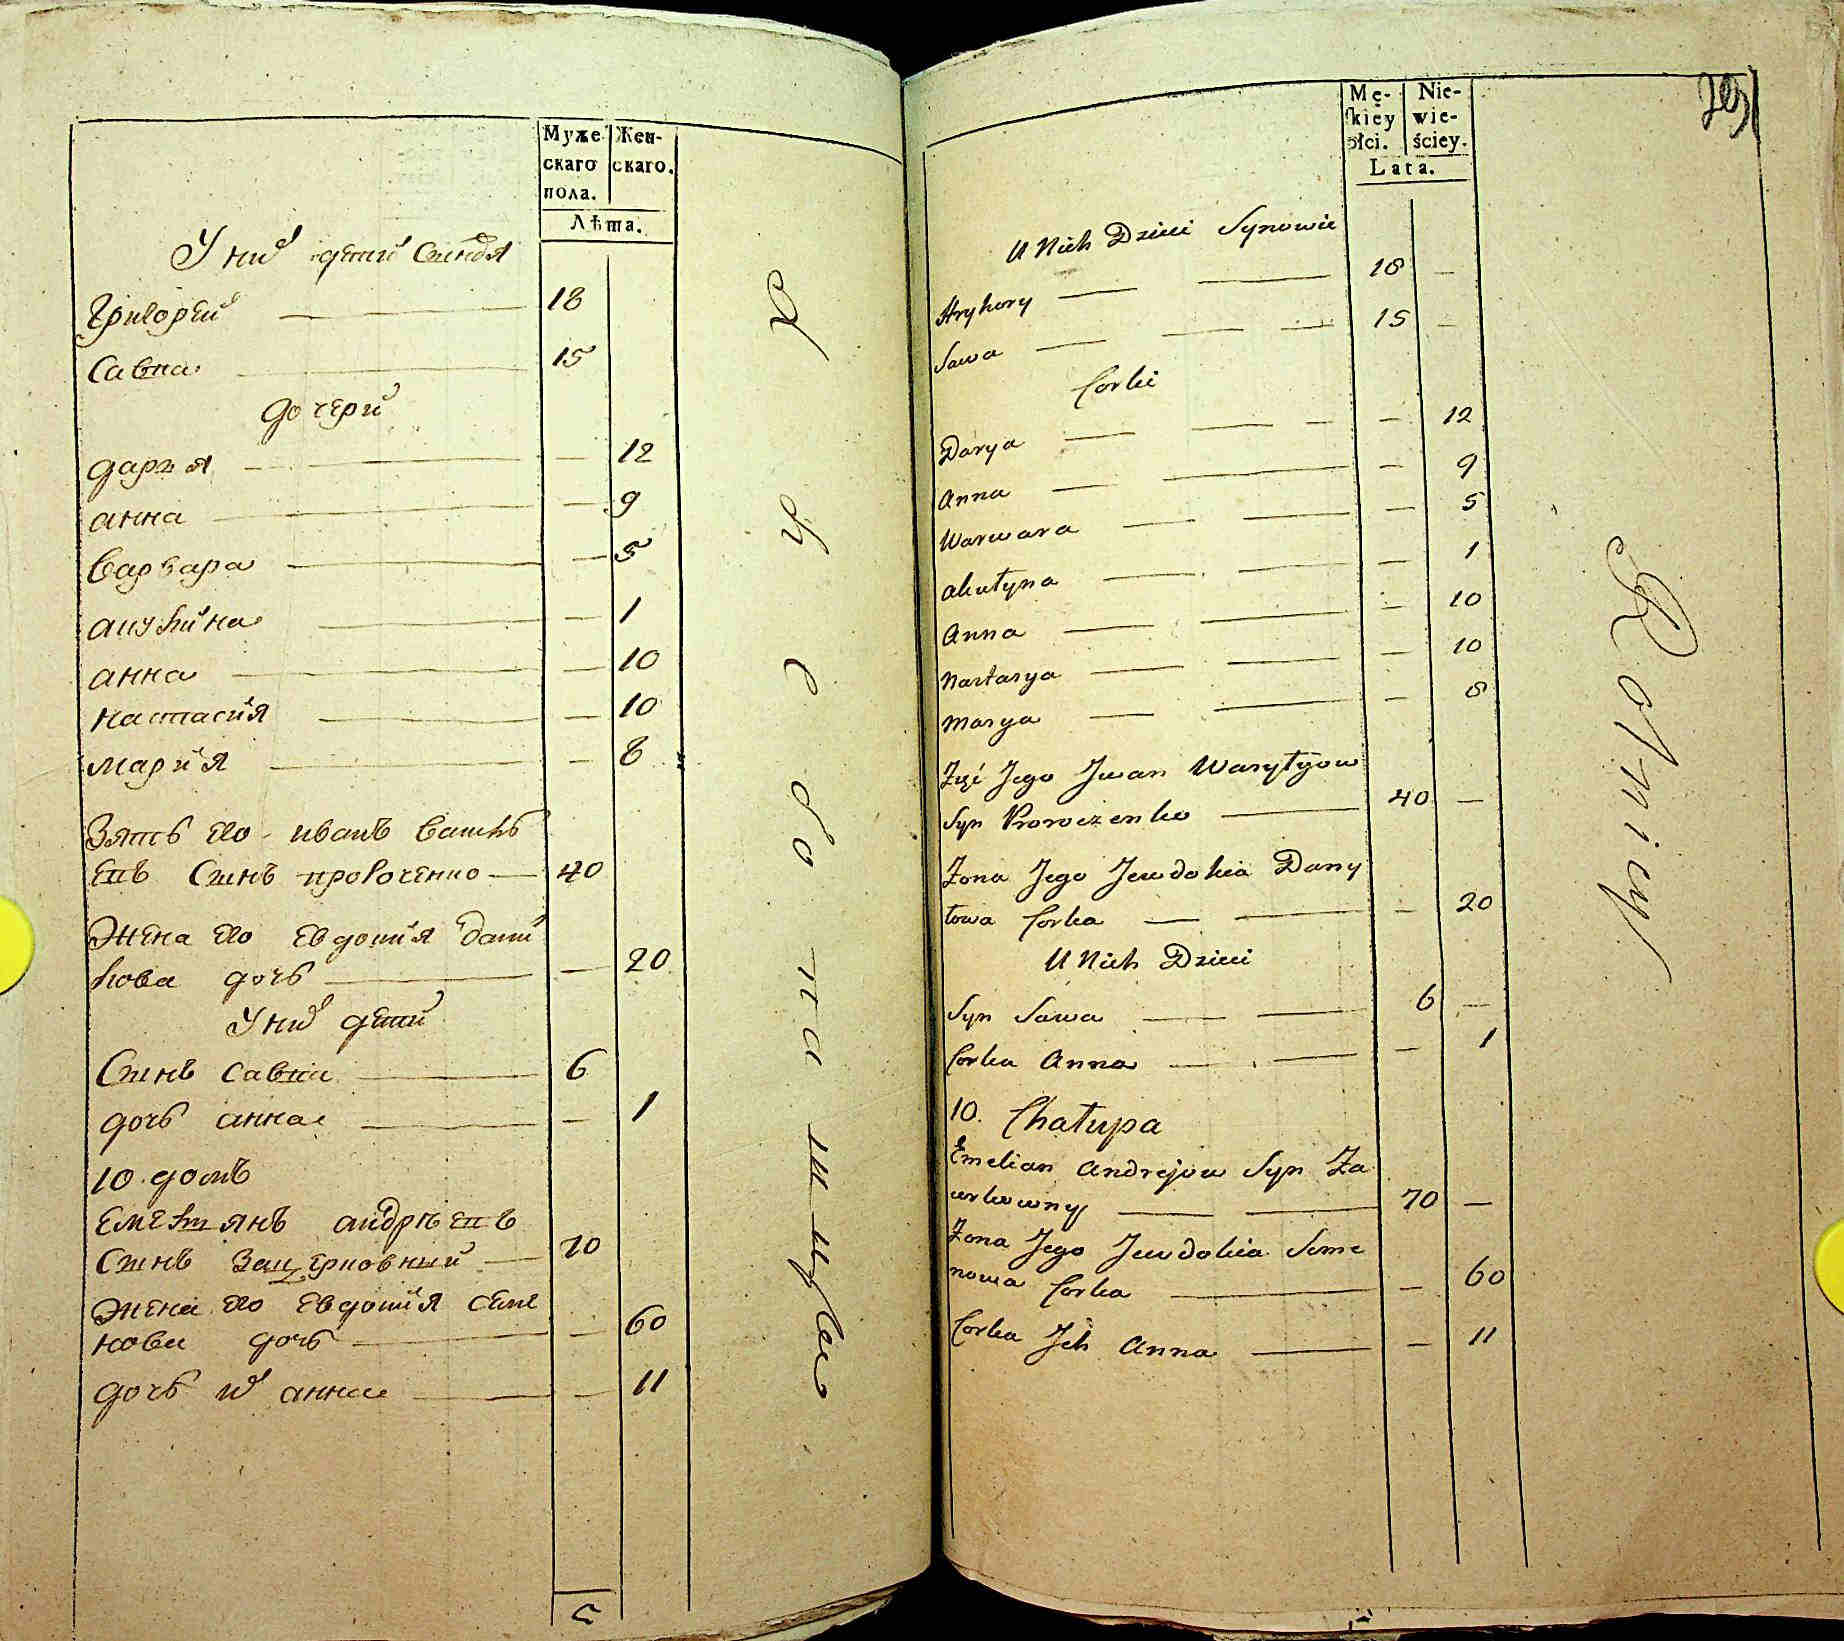 Муже
скаго
пола.
Жен-
скаго.
Лѣта.
У них детей синовя
Григорей 18
Савка 15
дочери
даря 12
анна 9
варвара 5
акулина 1
анна 10
настасия 10
мария 8
Зять его иванъ васил
евъ синъ прокоченко 40
Жена его евдокия дани
лова дочь 20
У них дети
Синъ савка 6
дочь анна 1
10. домъ
Емелянъ андрѣевъ
синъ зацерковний 70
Жена его евдокия семе
нова дочь 60
дочь их анна 11
Mę-
skiey
płci.
Nie-
wie-
ściey.
Lata.
U Nich Dzieci Synowie
Hryhory 18
Sawa 15
Corki
Darya 12
Anna 9
Warwara 5
Akulyna 1
Anna 10
Nastasya 10
Marya 8
Zięć Jego Jwan Wasylyow
Syn 40
Zona Jego Jewdokia Dany
lowa Corka 20
U Nich Dzieci
Syn Sawa 6
Corka Anna 1
10. Chałupa
Emelian Andrejow Syn Za
cerkowny 70
Zona Jego Jewdokia Seme
nowa Corka 60
Corka Jch Anna 11
Rolnicy